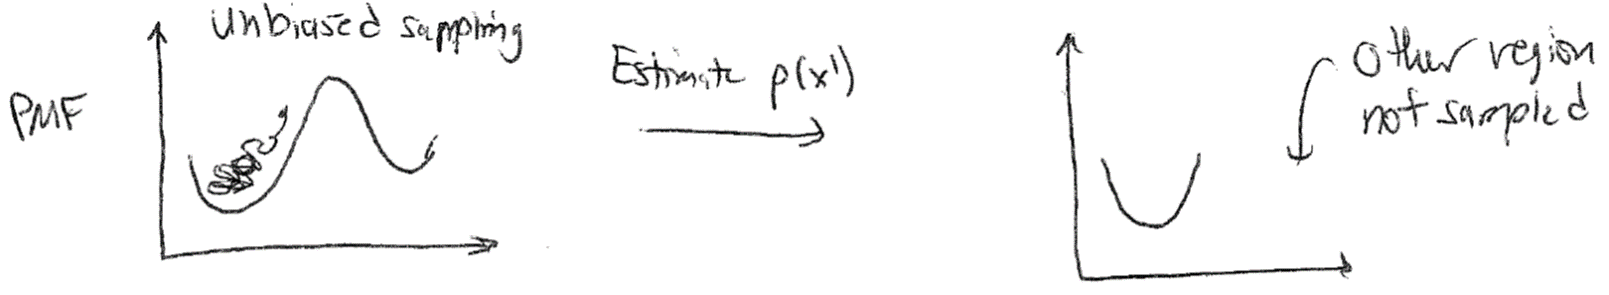 Unbiased sampling
PMF
Estimate p(x')
Other region
not sampled